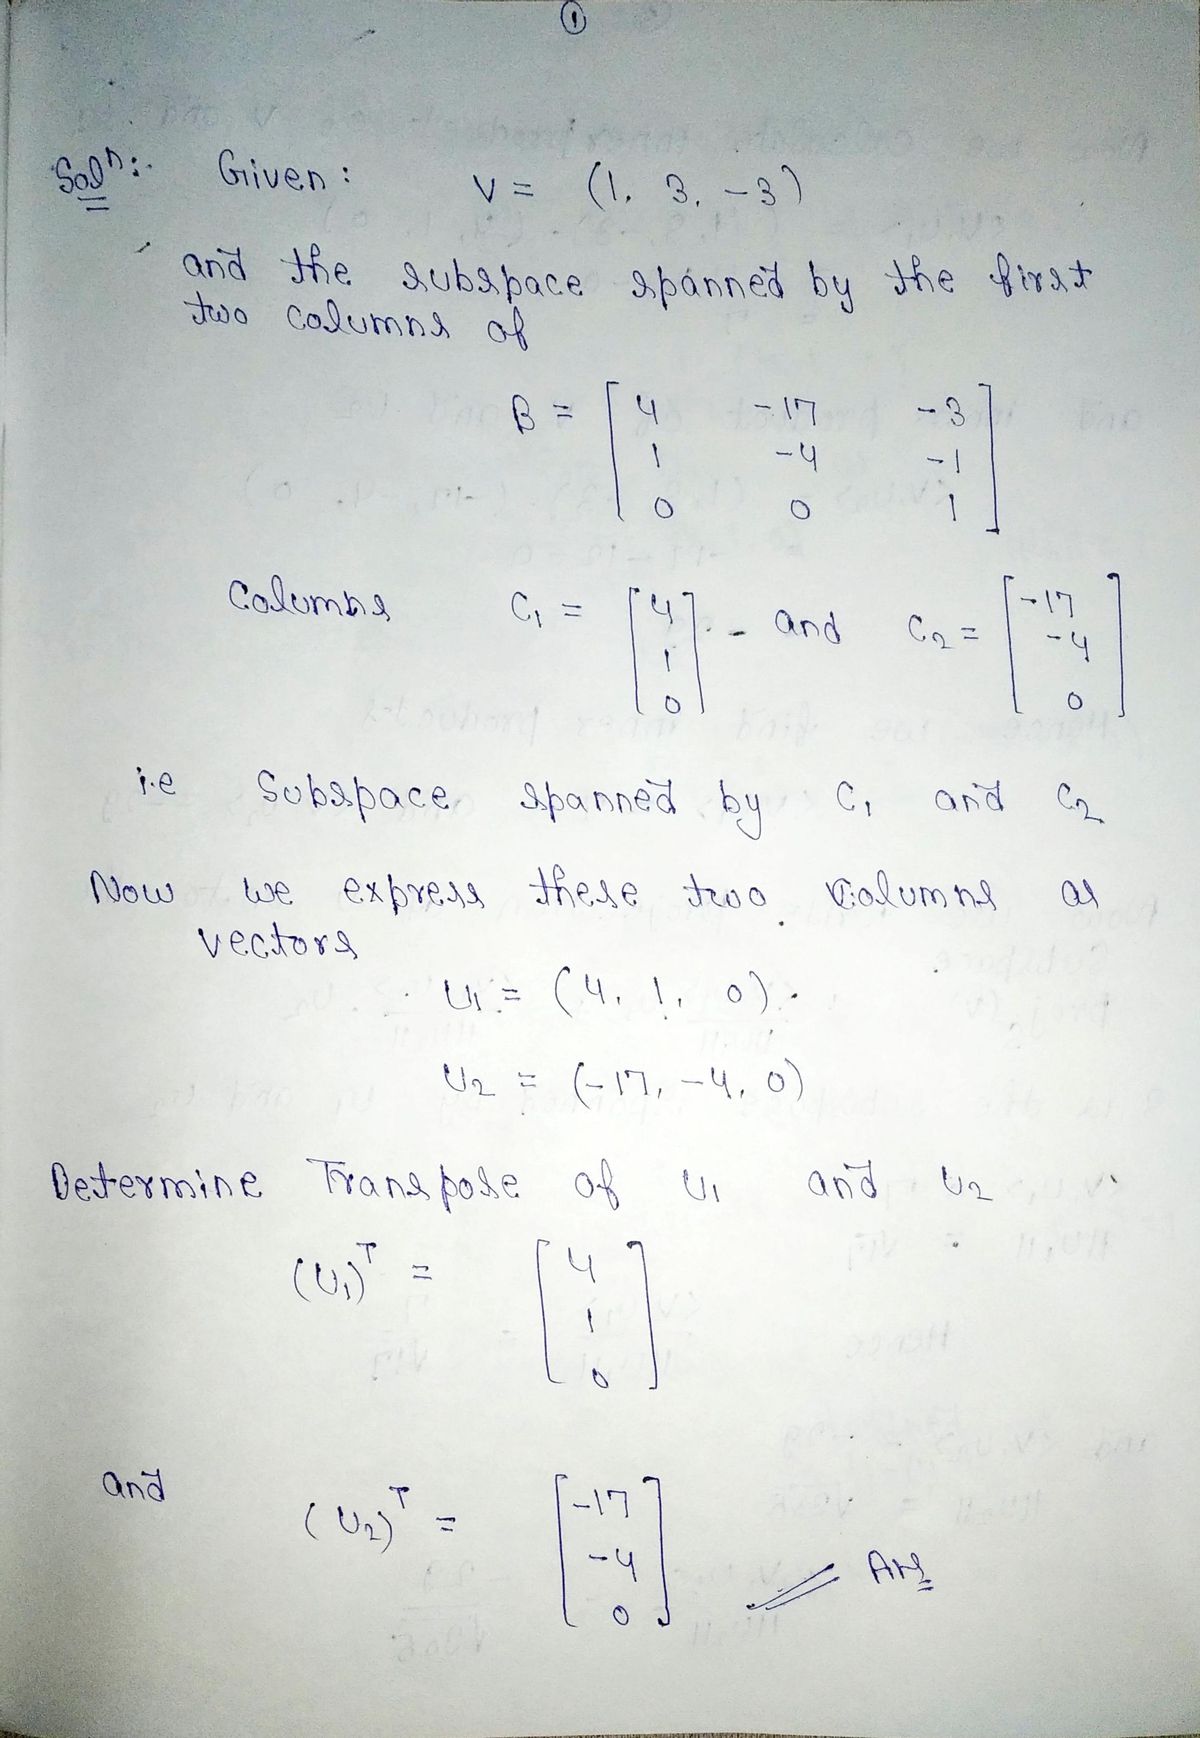 1
Solⁿ:. Given : V = (1, 3, -3)
and the subspace spanned by the first
two columns of
B = [ 4 -17 -3
1 -4 -1
0 0 1 ]
Columns C₁ = [ 4 1 0 ] and C₂ = [ -17 -4 0 ]
i.e Subspace spanned by C₁ and C₂
Now we express these two columns as
vectors
U₁ = (4, 1, 0).
U₂ = (-17, -4, 0)
Determine Transpose of U₁ and U₂
(U₁)ᵀ = [ 4
1
0 ]
and (U₂)ᵀ = [ -17
-4
0 ] Ans